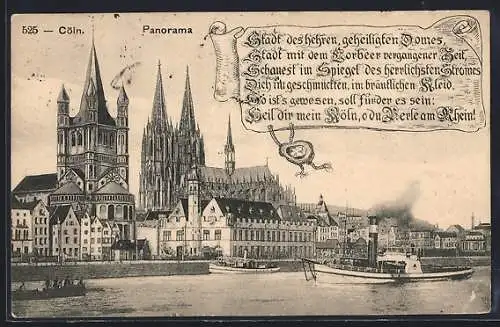 525 – Cöln. Panorama
Stadt des hehren, geheiligten Domes,
Stadt mit dem Lorbeer vergangener Zeit,
Schauest im Spiegel des herrlichsten Stromes
Dich im geschmückten, im bräutlichen Kleid.
So ist's gewesen, soll fürder es sein:
Heil dir mein Köln, o du Perle am Rhein!